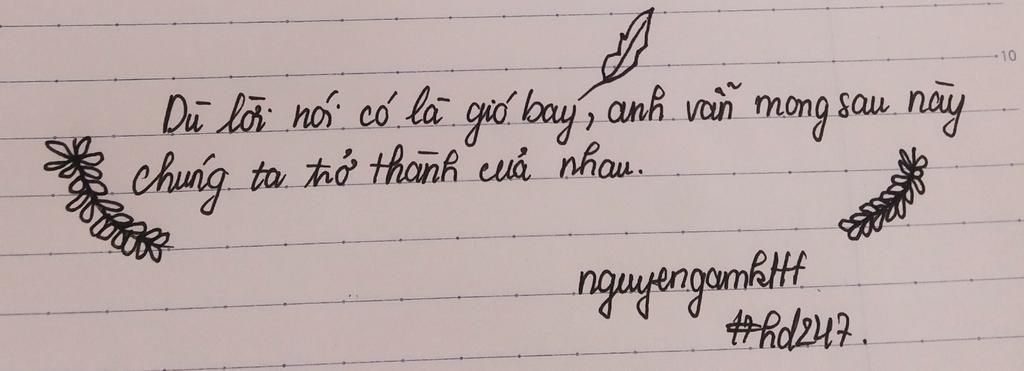 Dù lời nói có là gió bay, anh vẫn mong sau này
chúng ta trở thành của nhau.
nguyengamkHf
#hd247.
10